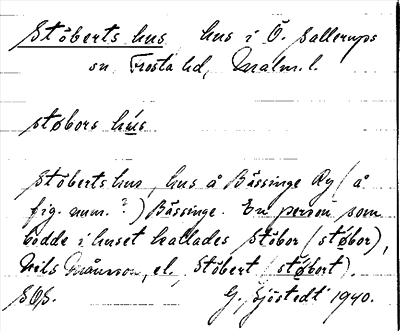 Stöberts hus, hus i Ö. Sallerups
sn, Frosta hd, Malm. l.
støbors hús
Stöberts hus, hus å Bässinge Ry (å
fig. num. ?) Bässinge. En person som
bodde i huset kallades Stöbor (støbor),
Nils Månsson, el. Stöbert (støbort).
SOS. G. Sjöstedt 1940.